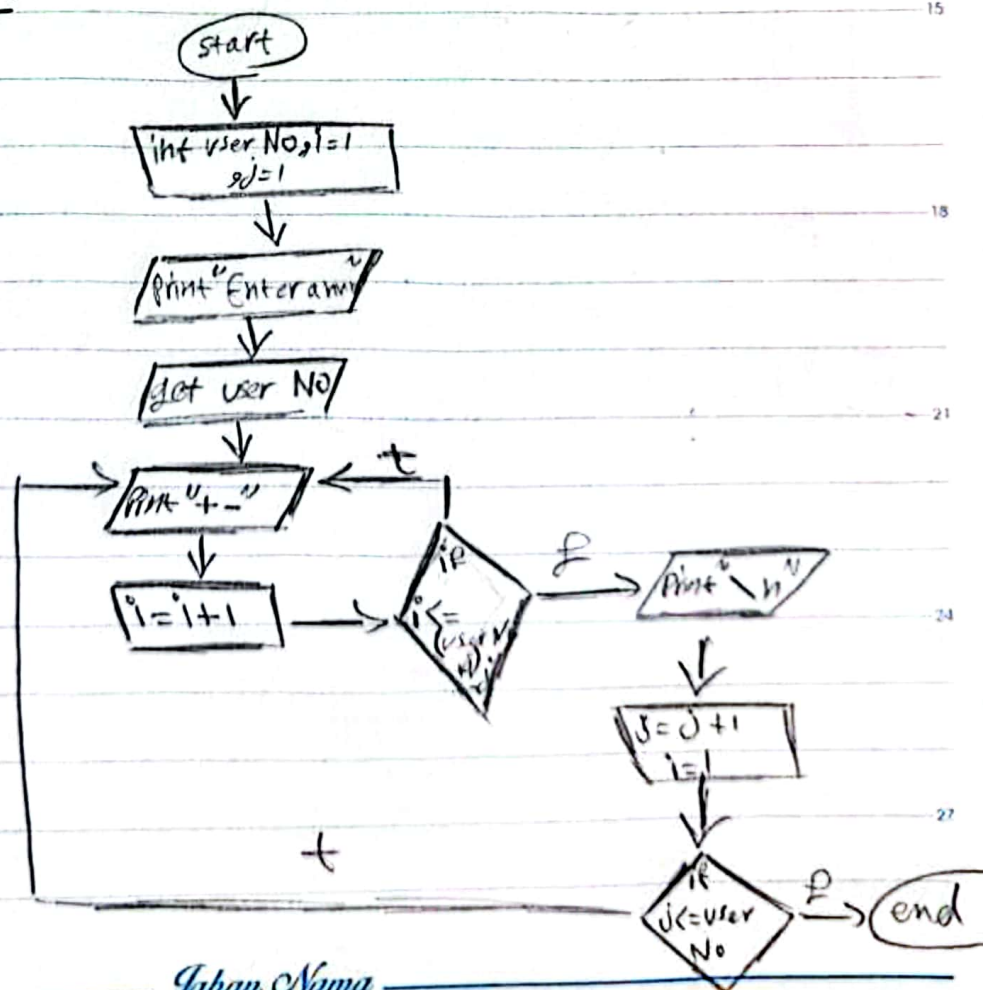 15
start
int user No, i=1
, j=1
18
print "Enter a
get user No
21
t
print "+-"
if
f
print "\n"
i=i+1
i<=
user No
24
j=j+1
i=1
27
t
if
j<=user
No
f
end
Jahan Nama